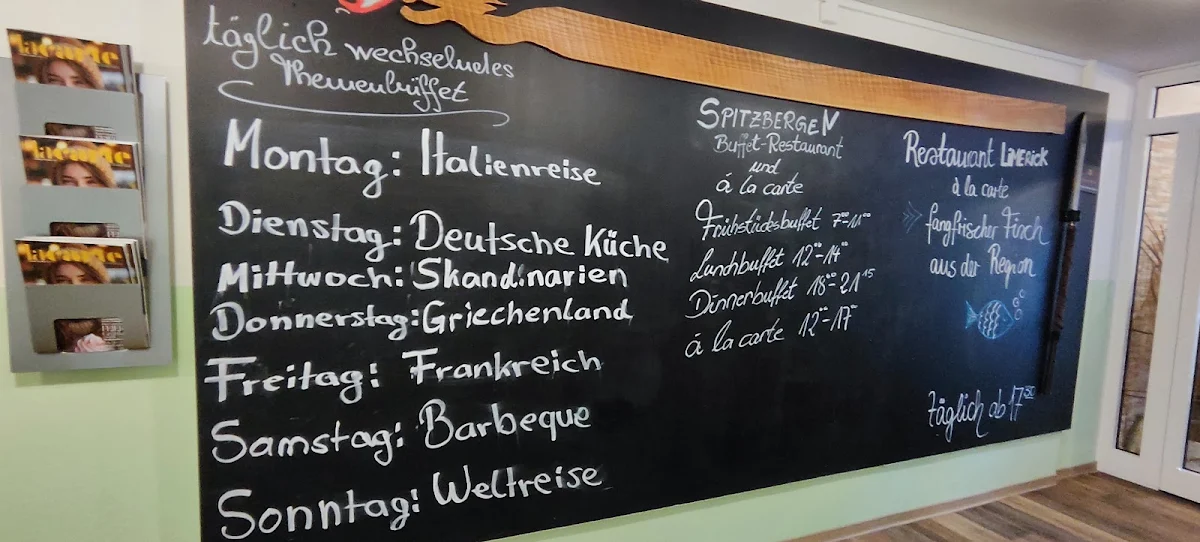 täglich wechselndes
Themenbüffet
Montag: Italienreise
Dienstag: Deutsche Küche
Mittwoch: Skandinarien
Donnerstag: Griechenland
Freitag: Frankreich
Samstag: Barbeque
Sonntag: Weltreise
SPITZBERGEN
Buffet-Restaurant
und
á la carte
Frühstücksbuffet 7⁰⁰-11⁰⁰
Lunchbuffet 12⁰⁰-14⁰⁰
Dinnerbuffet 18⁰⁰-21¹⁵
á la carte 12⁰⁰-17⁰⁰
Restaurant LIMERICK
à la carte
fangfrischer Fisch
aus der Region
täglich ab 17³⁰
la carte
la carte
la carte